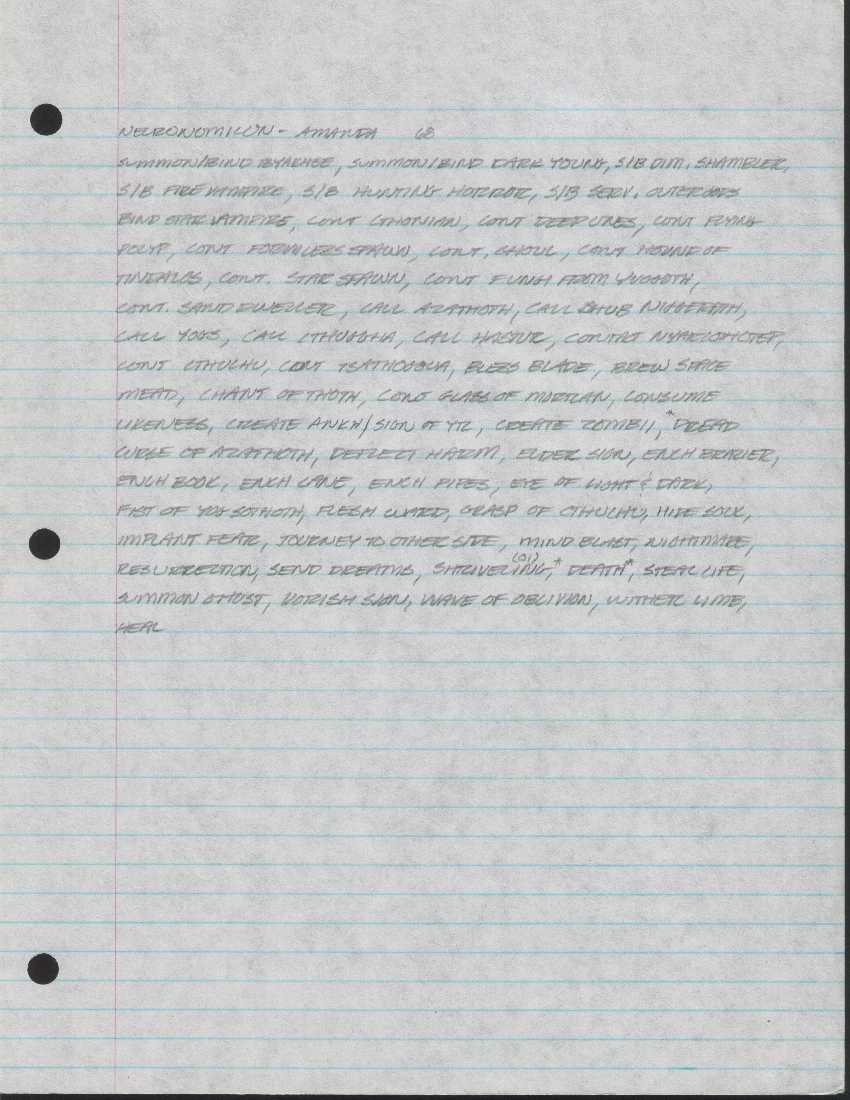 NECRONOMICON - AMANDA 68
SUMMON/BIND BYAKHEE, SUMMON/BIND DARK YOUNG, S/B DIM. SHAMBLER,
S/B FIRE VAMPIRE, S/B HUNTING HORROR, S/B SERV. OUTERGODS
BIND STAR VAMPIRE, CONT CTHONIAN, CONT DEEP ONES, CONT FLYING
POLYP, CONT FORMLESS SPAWN, CONT. GHOUL, CONT HOUND OF
TINDALOS, CONT. STAR SPAWN, CONT FUNGI FROM YUGGOTH,
CONT. SAND DWELLER, CALL AZATHOTH, CALL SHUB NIGGERATH,
CALL YOGS, CALL CTHUGGHA, CALL HASTUR, CONTACT NYARLOHOTEP,
CONT CTHULHU, CONT TSATHOGGUA, BLESS BLADE, BREW SPACE
MEAD, CHANT OF THOTH, CONT GLASS OF MORTLAN, CONSUME
LIKENESS, CREATE ANKH/SIGN OF YTL, CREATE ZOMBII, *DREAD
CURSE OF AZATHOTH, DEFLECT HARM, ELDER SIGN, ENCH BRAZIER,
ENCH BOOK, ENCH CANE, ENCH PIPES, EYE OF LIGHT & DARK,
FIST OF YOG SOTHOTH, FLESH WARD, GRASP OF CTHULHU, HIDE SOUL,
IMPLANT FEAR, JOURNEY TO OTHER SIDE, MIND BLAST, NIGHTMARE,
RESURRECTION, SEND DREAMS, SHRIVELING,* DEATH*, STEAL LIFE,
SUMMON GHOST, VORISH SIGN, WAVE OF OBLIVION, WITHER LIMB,
HEAL